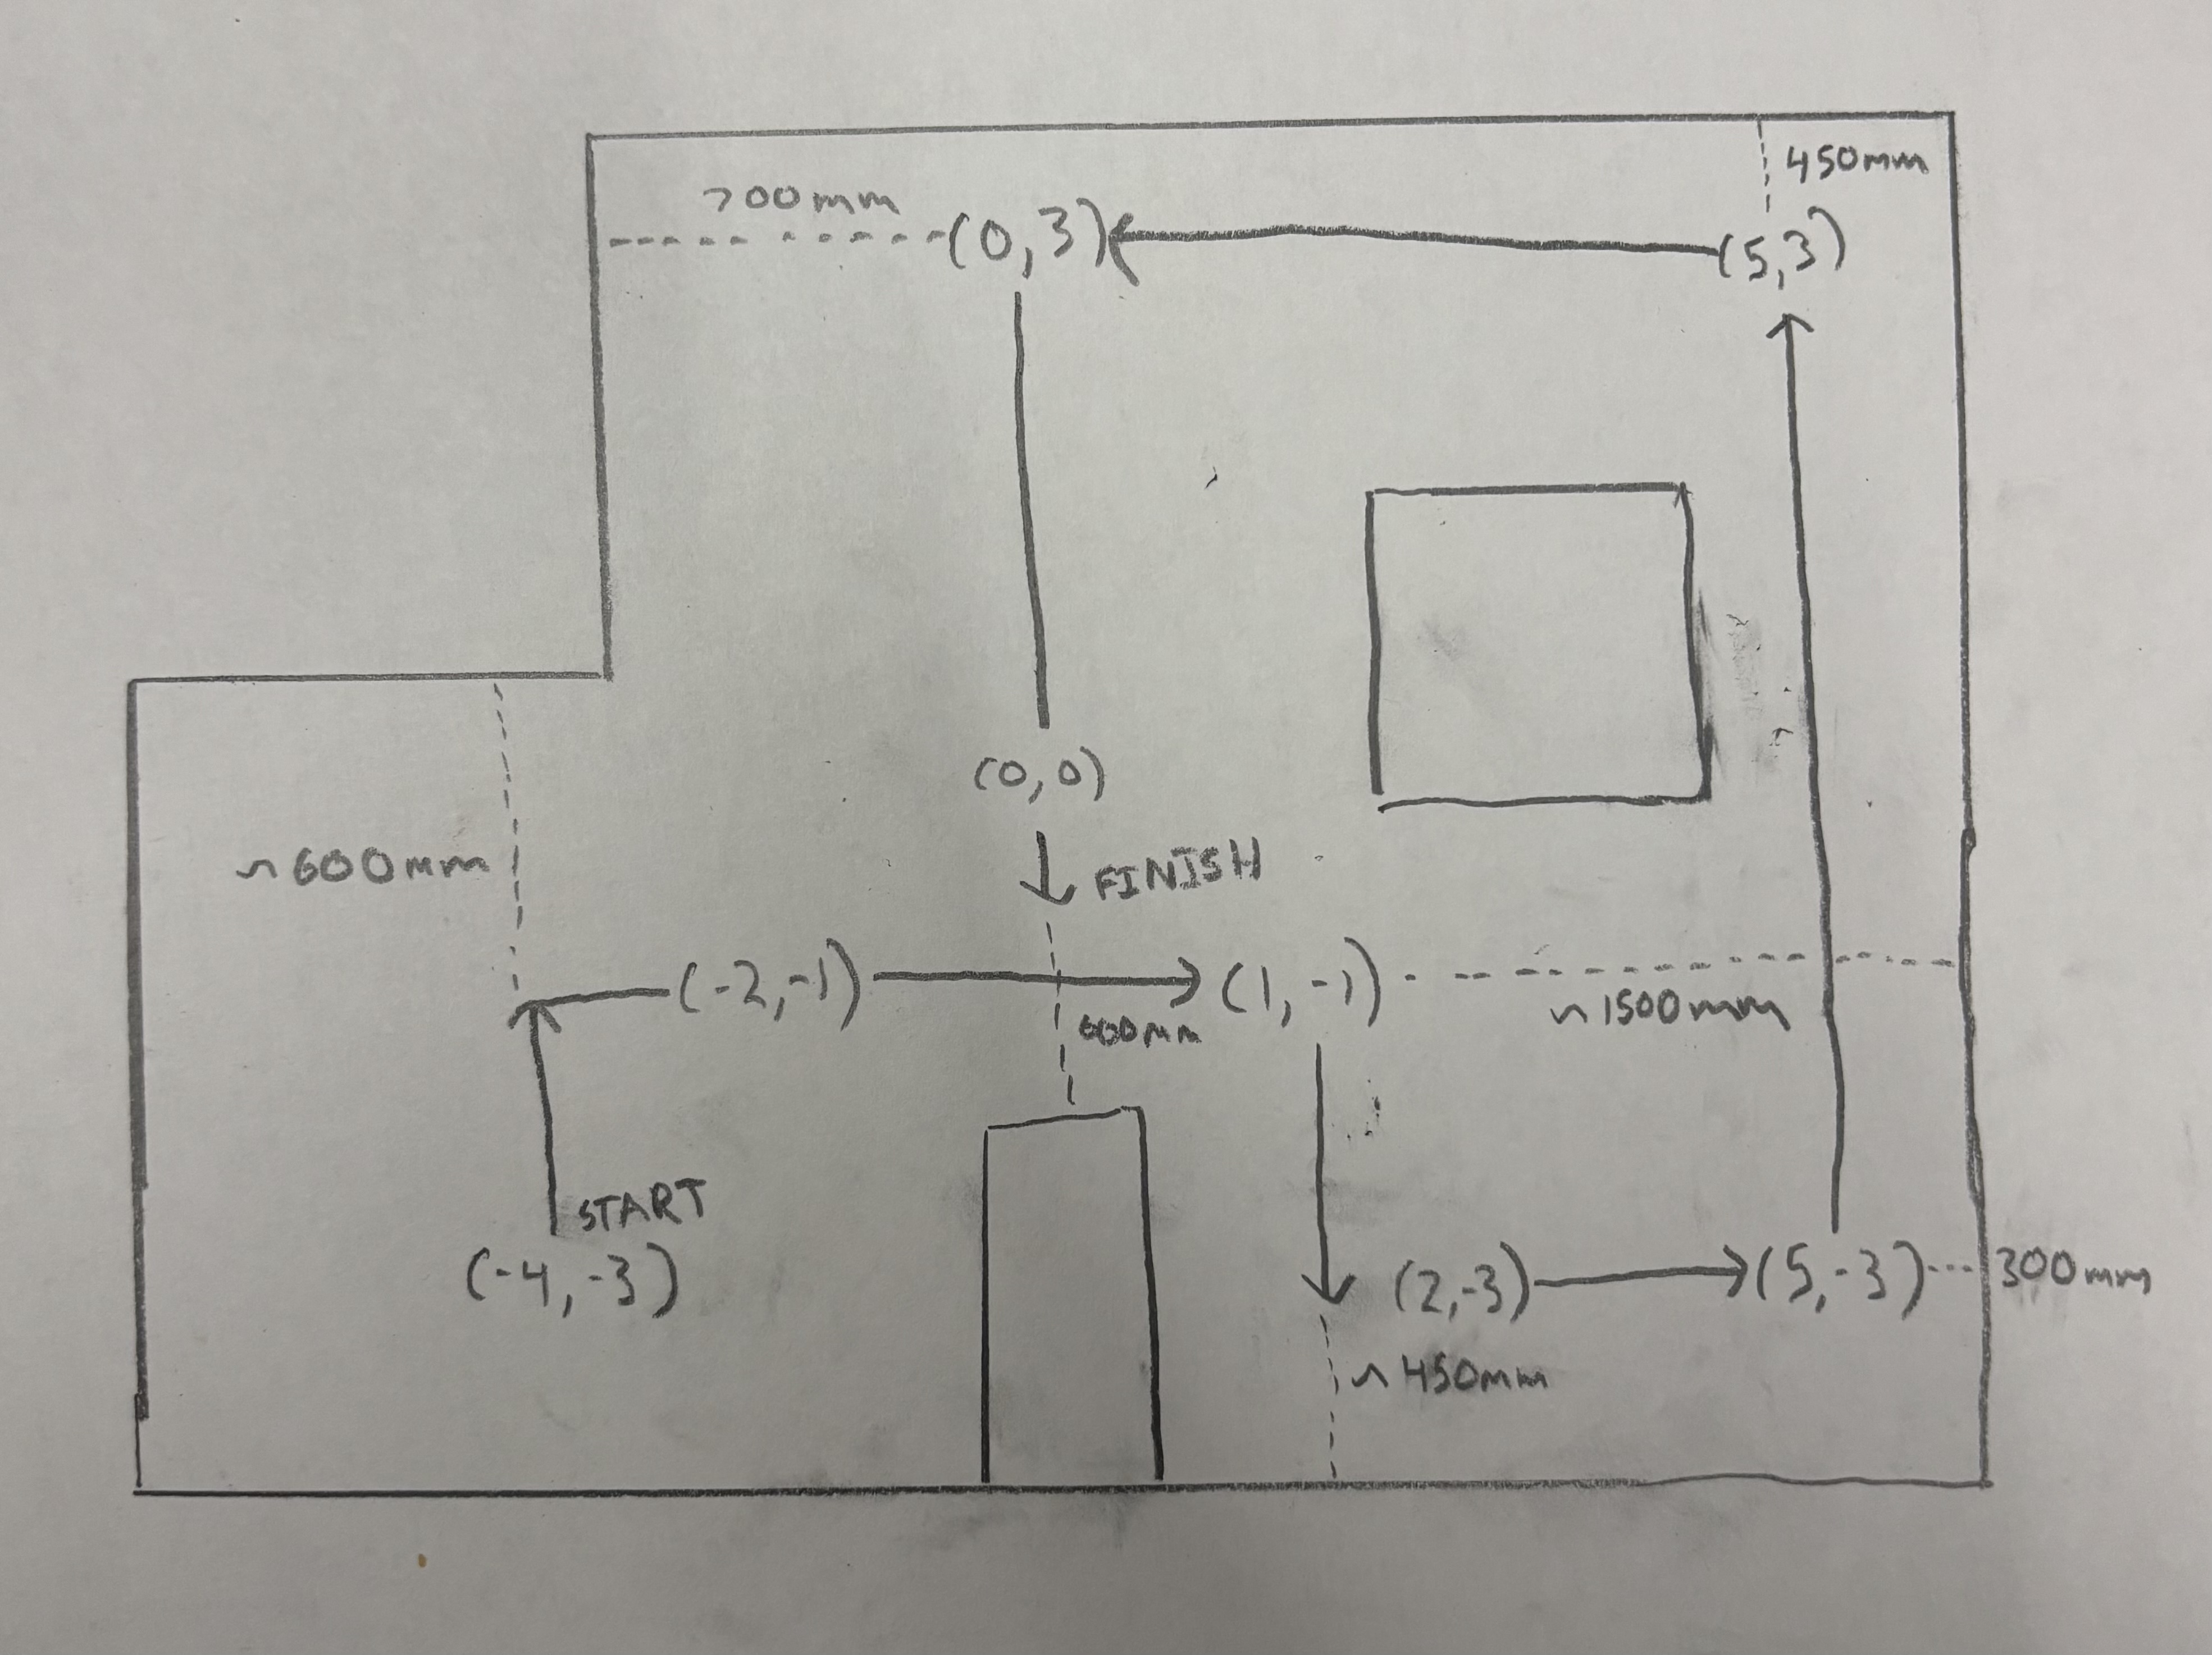 450mm
700mm
(0,3)
(5,3)
(0,0)
~600mm
FINISH
(-2,-1)
(1,-1)
~1500mm
600mm
START
(-4,-3)
(2,-3)
(5,-3)
300mm
~450mm